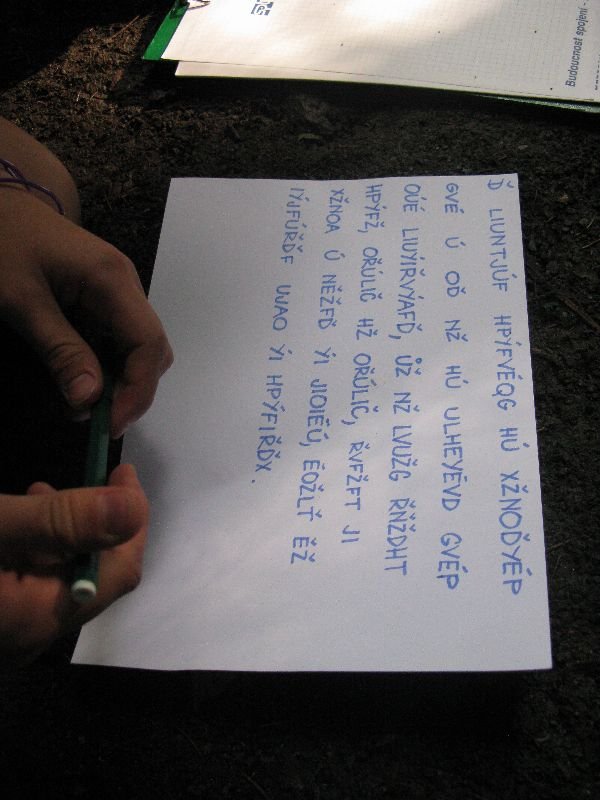 Budoucnost spojení -
Ď LIUNTJÚF HPÝFVÉQG HÚ XŽNOĎYÉP
GVÉ Ú OĎ NŽ HÚ ULHEYÉVD GVÉP
OÚÉ LIUÝIŘVÝAFĎ, ŮŽ NŽ LVUŽG ŘŇŽDHT
HPÝFŽ, OŘÚLIČ HŽ OŘÚLIČ, ŘVFŽFT JI
XŽNOA Ú NĚŽFĎ ÝI JIOIÉÚ, ĚOŽLŤ ĚŽ
IÝIFÚŘĎF UWAO ÝI HPÝFIŘĎX.